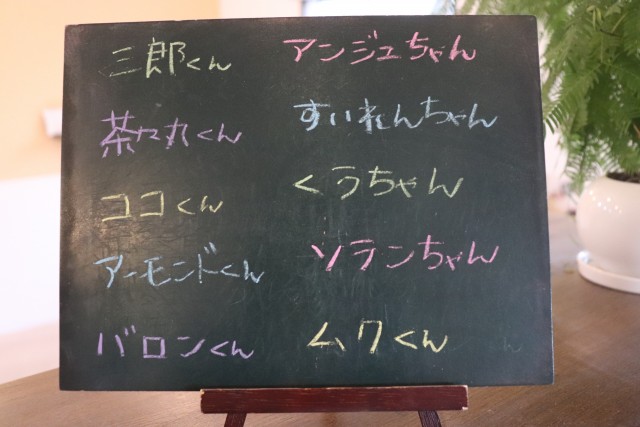 三郎くん
茶々丸くん
ココくん
アーモンドくん
バロンくん
アンジュちゃん
すいれんちゃん
くうちゃん
ソランちゃん
ムクくん